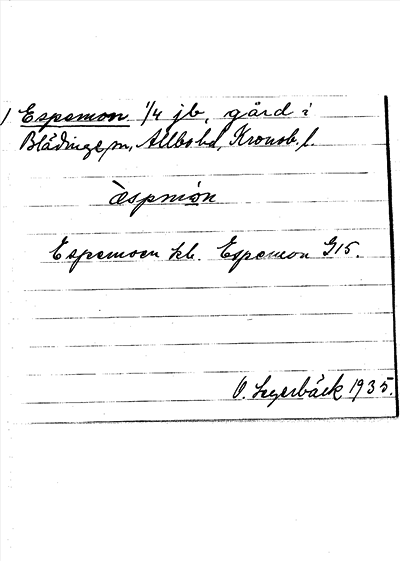 Espemon 1/4 jb, gård i
Blädinge sn, Allbo hd, Kronob. l.
æspmòn
Espemoen kb. Espemon G15.
O. Lagerbäck 1935.